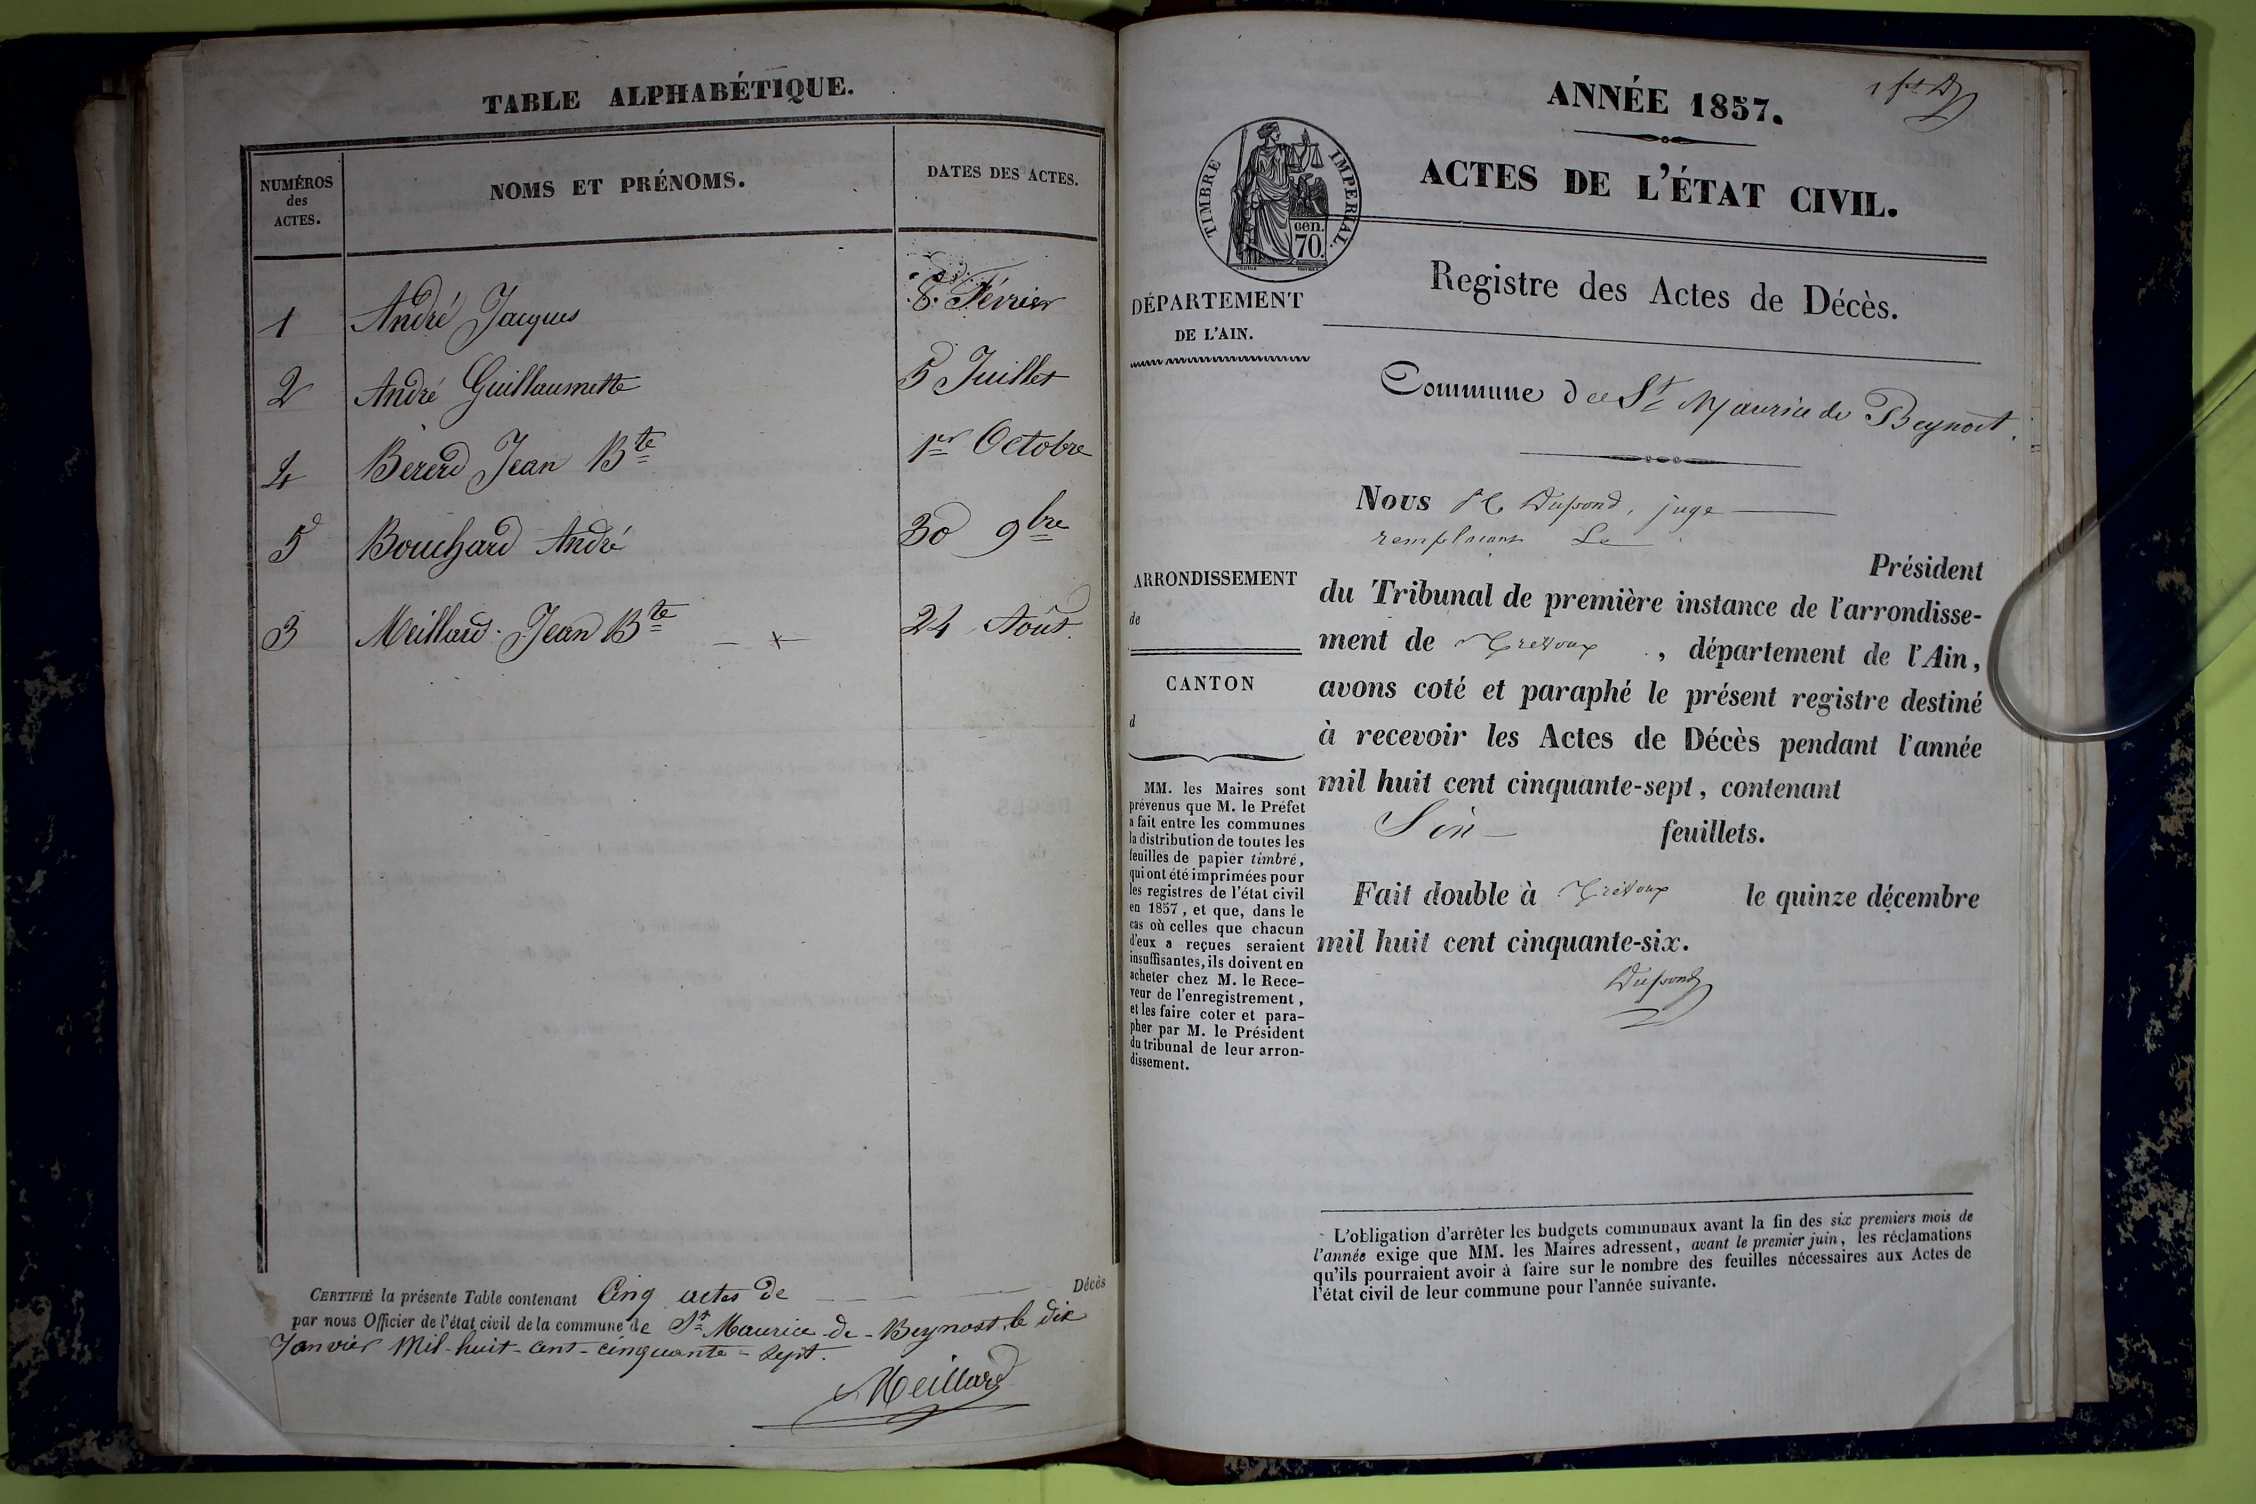 TABLE ALPHABÉTIQUE.
NUMÉROS
des
ACTES.
NOMS ET PRÉNOMS.
DATES DES ACTES.
1 André Jacques 8 Février
2 André Guillaumette 5 Juillet
4 Bererd Jean Bte 1er Octobre
5 Bouchard André 30 9bre
3 Meillard Jean Bte 24 Août.
CERTIFIÉ la présente Table contenant Cinq actes de Décès
par nous Officier de l'état civil de la commune de St Maurice-de-Beynost, le dix
Janvier Mil-huit-cent-cinquante-sept.
Meillard
ANNÉE 1857.
ACTES DE L'ÉTAT CIVIL.
TIMBRE IMPERIAL.
cen.
70.
Registre des Actes de Décès.
DÉPARTEMENT
DE L'AIN.
Commune de St Maurice de Beynost.
Nous Dupond, juge
remplaçant Le
Président
du Tribunal de première instance de l'arrondisse-
ment de Trévoux, département de l'Ain,
avons coté et paraphé le présent registre destiné
à recevoir les Actes de Décès pendant l'année
mil huit cent cinquante-sept, contenant
Six feuillets.
Fait double à Trévoux le quinze décembre
mil huit cent cinquante-six.
Dupond
ARRONDISSEMENT
de
CANTON
d
MM. les Maires sont
prévenus que M. le Préfet
a fait entre les communes
la distribution de toutes les
feuilles de papier timbré,
qui ont été imprimées pour
les registres de l'état civil
en 1857, et que, dans le
cas où celles que chacun
d'eux a reçues seraient
insuffisantes, ils doivent en
acheter chez M. le Rece-
veur de l'enregistrement,
et les faire coter et para-
pher par M. le Président
du tribunal de leur arron-
dissement.
L'obligation d'arrêter les budgets communaux avant la fin des six premiers mois de
l'année exige que MM. les Maires adressent, avant le premier juin, les réclamations
qu'ils pourraient avoir à faire sur le nombre des feuilles nécessaires aux Actes de
l'état civil de leur commune pour l'année suivante.